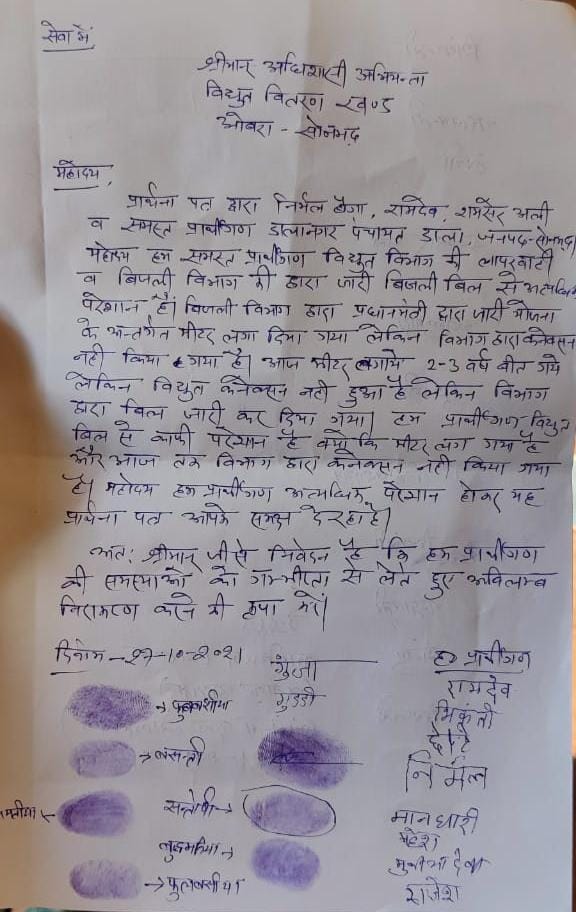 सेवा में
श्रीमान् अधिशासी अभियन्ता
विद्युत वितरण खण्ड
ओबरा - सोनभद्र
महोदय,
प्रार्थना पत्र द्वारा निर्मल ओझा, रामदेव, शमसेर अली
व समस्त प्रार्थीगण डालानगर पंचायत डाला, जनपद-सोनभद्र
महोदय हम समस्त प्रार्थीगण विद्युत विभाग की लापरवाही
व बिजली विभाग की द्वारा जारी बिजली बिल से अत्यधिक
परेशान हैं। बिजली विभाग द्वारा प्रधानमंत्री द्वारा जारी योजना
के अन्तर्गत मीटर लगा दिया गया लेकिन विभाग द्वारा कनेक्सन
नही किया गया है। आज मीटर लगाये 2-3 वर्ष बीत गये
लेकिन विद्युत कनेक्सन नही हुआ है लेकिन विभाग
द्वारा बिल जारी कर दिया गया। हम प्रार्थीगण विद्युत
बिल से काफी परेसान है क्यों कि मीटर लग गया है
और आज तक विभाग द्वारा कनेक्सन नही किया गया
है। महोदय हम प्रार्थीगण अत्यधिक परेसान होकर यह
प्रार्थना पत्र आपके समक्ष दे रहा है।
अतः श्रीमान् जी से निवेदन है कि हम प्रार्थीगण
की समस्याओं को गम्भीरता से लेते हुए अविलम्ब
निराकरण करने की कृपा करें।
दिनांक - 27-10-2021
गुंजा
गुड्डी
हम प्रार्थीगण
रामदेव
निर्मल
मानधारी
महेश
राजेश
बसन्ती
सन्तोषी
फुलबसीया